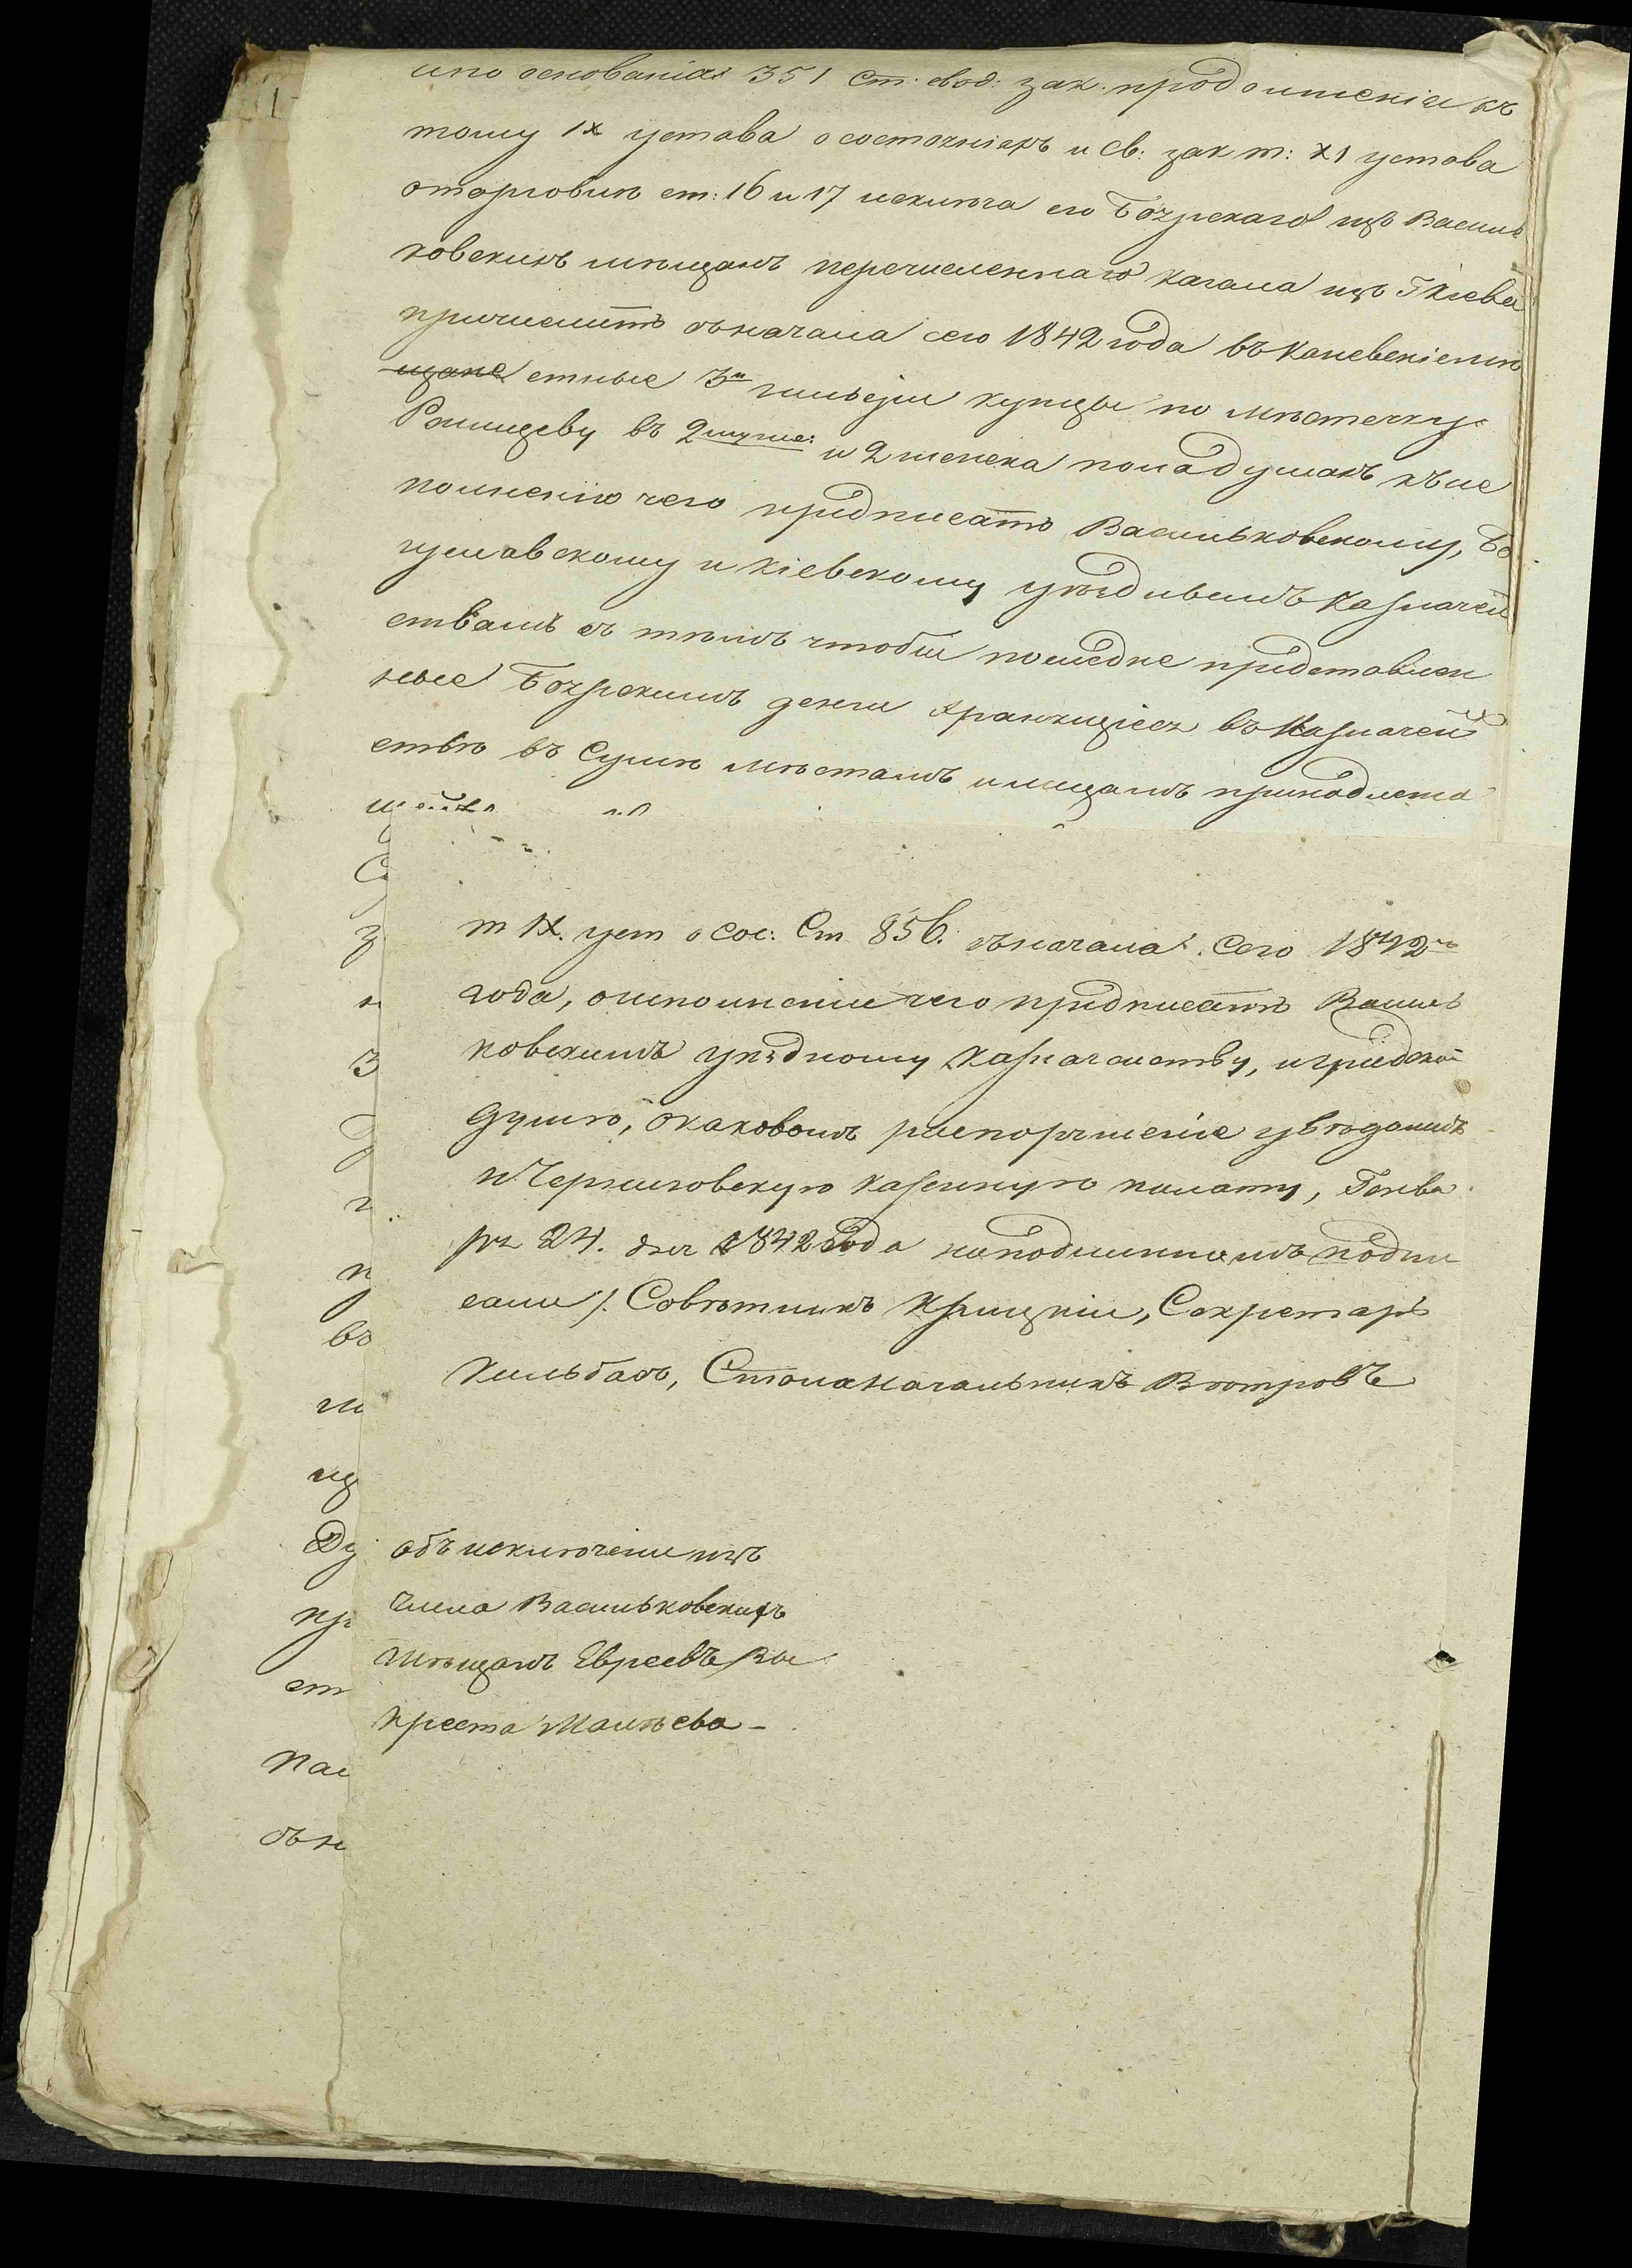 и по основаніи 351 Ст: свод: зак. продолженія къ
тому IX устава о состояніяхъ и Св: зак т: XI устава
о торговли ст: 16 и 17 исключа его Бозрскаго изъ Василь
ковскихъ мѣщанъ перечисленнаго кагала изъ Г Кіева
причислить съ начала сего 1842 года въ Каневскіе мѣ
щане стные 3й гильдіи купцы по мѣстечку
Ржищеву въ 2 муже: и 2 женска пола душахъ къ ис
полненію чего предписать Васильковскому, Бо
гуславскому и Кіевскому уѣзднымъ Казначей
ствамъ съ тѣмъ чтобы последне представлен
ные Бозрскимъ денги хранящіеся въ Казначей
ствѣ въ Сумѣ мѣстамъ и лицамъ принадлежа
С
з
н
З
г
п
въ
ли
ищ
Ду
пр
ст
пас
объ н
т IX. уст о сос: Ст 856. съ начала сего 1842го
года, о исполнение чего предписать Василь
ковскимъ уѣздному Казначейству, и градской
Думѣ, о каковомъ распоряжение увѣдомить
и Черниговскую казенную палату, Генва
ря 24. дня 1842 года на подлинномъ подпи
сали /: Совѣтникъ Крицкіи, Секретарь
Кильбахъ, Столаначальникъ Вѣтровъ
объ исключение изъ
числа Васильковскихъ
мѣщанъ Евреевъ Вы
креста Малѣева –